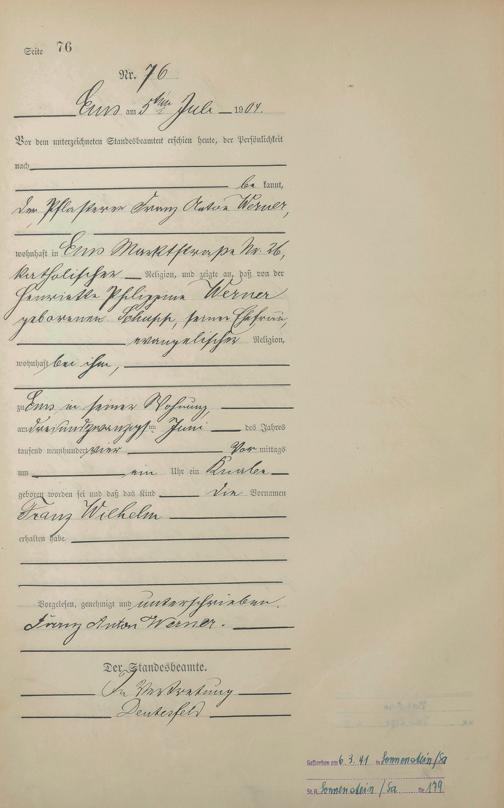 Seite 76
Nr. 76
Ems am 5ten Juli 1904.
Vor dem unterzeichneten Standesbeamten erschien heute, der Persönlichkeit
nach
be kannt,
der Pflasterer Franz Anton Werner,
wohnhaft in Ems Marktstraße Nr. 26,
katholischer Religion, und zeigte an, daß von der
Henriette Philippine Werner
geborenen Schupp, seiner Ehefrau,
evangelischer Religion,
wohnhaft bei ihm,
zu Ems in seiner Wohnung,
am dreiundzwanzigsten Juni des Jahres
tausend neunhundert vier Vor mittags
um ein Uhr ein Knabe
geboren worden sei und daß das Kind die Vornamen
Franz Wilhelm
erhalten habe.
Vorgelesen, genehmigt und unterschrieben.
Franz Anton Werner.
Der Standesbeamte.
In Vertretung
Gestorben am 6.3.41 in Sonnenstein/Sa
St.A. Sonnenstein/Sa Nr 179